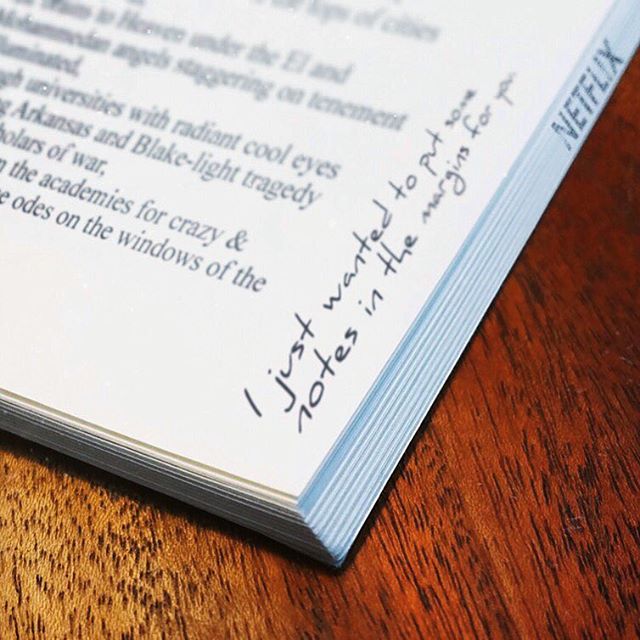 of cities
to Heaven under the El and
angels staggering on tenement
illuminated.
universities with radiant cool eyes
Arkansas and Blake-light tragedy
scholars of war.
the academies for crazy &
odes on the windows of the
I just wanted to put some
notes in the margins for you.
NETFLIX